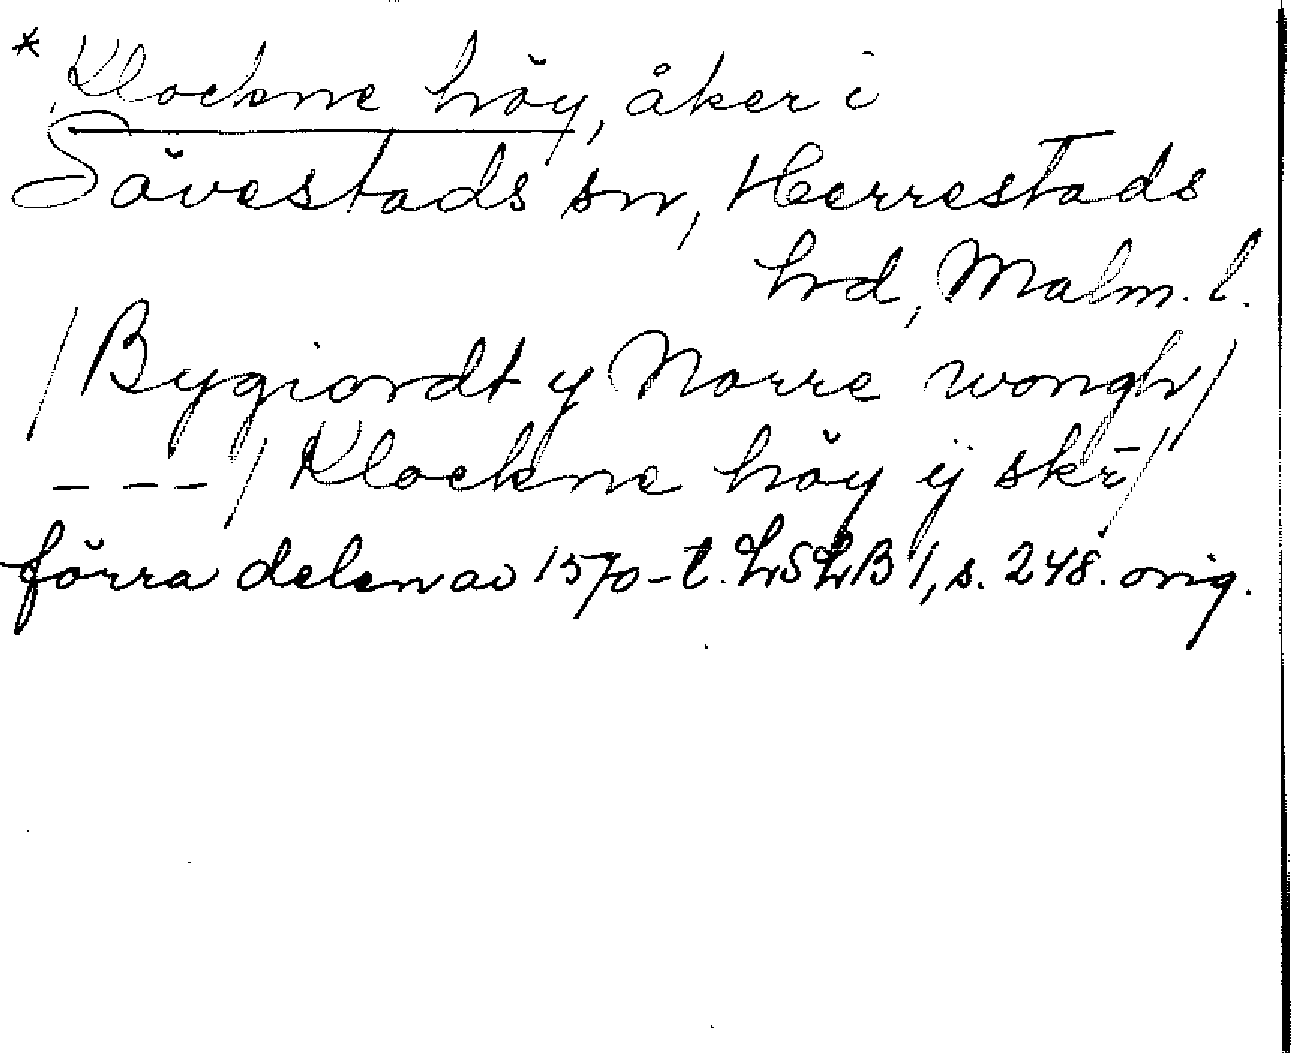 * Klockne höy, åker i
Sövestads sn, Herrestads
hrd, Malm. l.
/Bygiordt y Norre wongh/
--- / Klockne höy ij skr̄/
förra delen av 1570-t. LSLB 1, s. 248. orig.